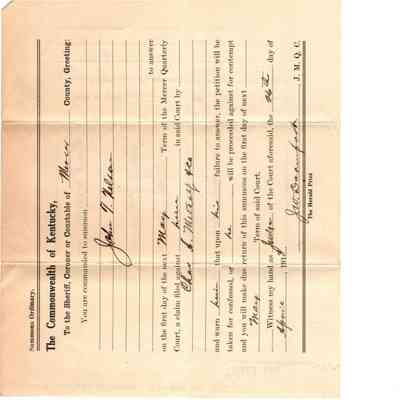 Summons Ordinary.
The Commonwealth of Kentucky,
To the Sheriff, Coroner or Constable of Mercer County, Greeting:
You are commanded to summon
John T. Nelson
to answer
on the first day of the next May Term of the Mercer Quarterly
Court, a claim filed against him in said Court by
Chas
and warn him that upon his failure to answer, the petition will be
taken for confessed, or he will be proceeded against for contempt
and you will make due return of this summons on the first day of next
May Term of said Court.
Witness my hand as Judge of the Court aforesaid, the day of
April 191
J. M. Q. C.
The Herald Print